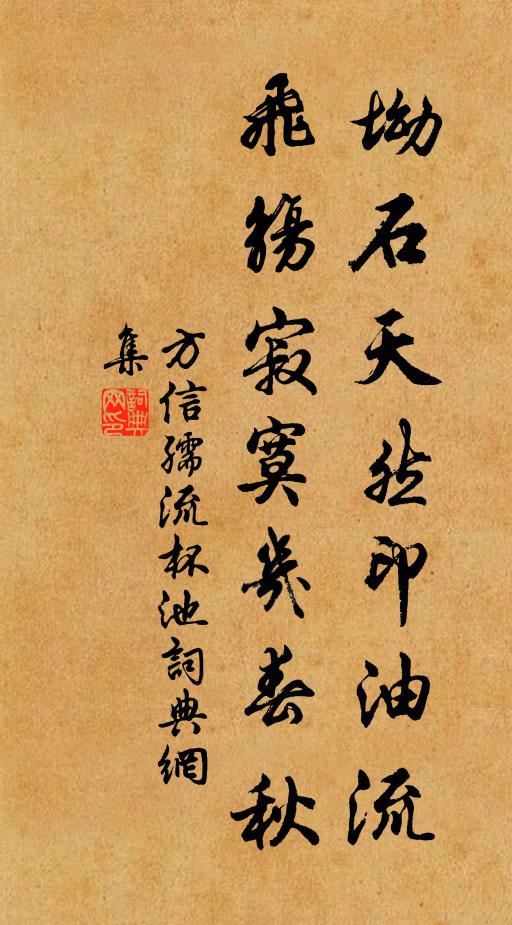 坳石天然印油流
飛觴寂寞幾春秋
方信孺流杯池詞典網
集
詞典網印